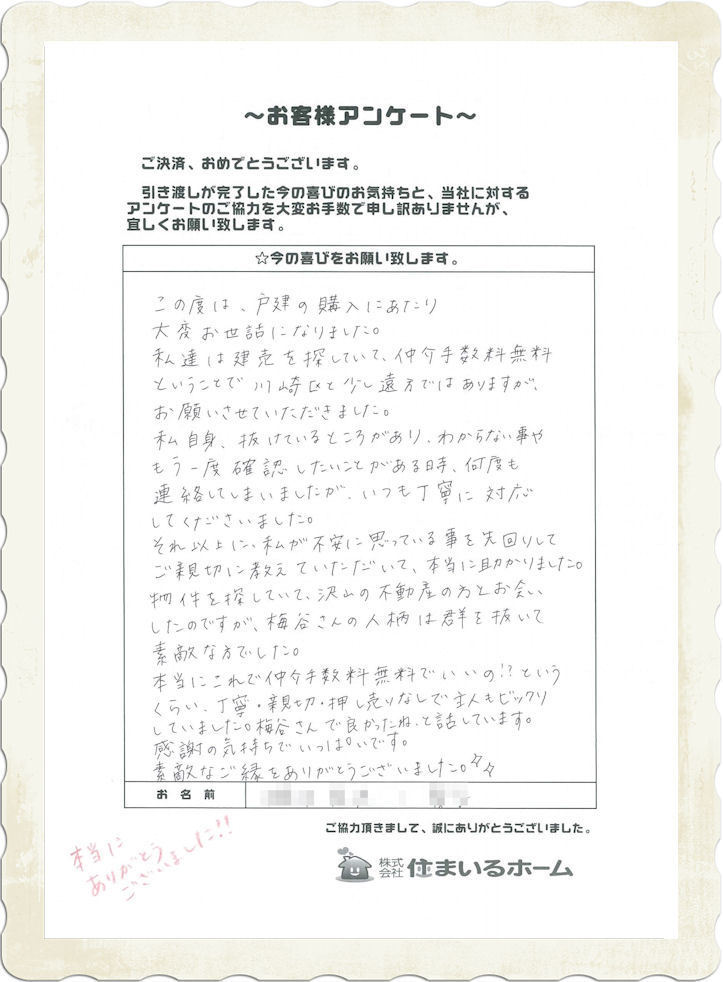 ～お客様アンケート～
ご決済、おめでとうございます。
引き渡しが完了した今の喜びのお気持ちと、当社に対する
アンケートのご協力を大変お手数で申し訳ありませんが、
宜しくお願い致します。
☆今の喜びをお願い致します。
この度は、戸建の購入にあたり
大変お世話になりました。
私達は建売を探していて、仲介手数料無料
ということで川崎区と少し遠方ではありますが、
お願いさせていただきました。
私自身、抜けているところがあり、わからない事や
もう一度確認したいことがある時、何度も
連絡してしまいましたが、いつも丁寧に対応
してくださいました。
それ以上に、私が不安に思っている事を先回りして
ご親切に教えていただいて、本当に助かりました。
物件を探していて、沢山の不動産の方とお会い
したのですが、梅谷さんの人柄は群を抜いて
素敵な方でした。
本当にこれで仲介手数料無料でいいの!?という
くらい、丁寧・親切・押し売りなしで主人もビックリ
していました。梅谷さんで良かったね、と話しています。
感謝の気持ちでいっぱいです。
素敵なご縁をありがとうございました。
お名前
ご協力頂きまして、誠にありがとうございました。
本当に
ありがとう
ございました!!
株式会社 住まいるホーム